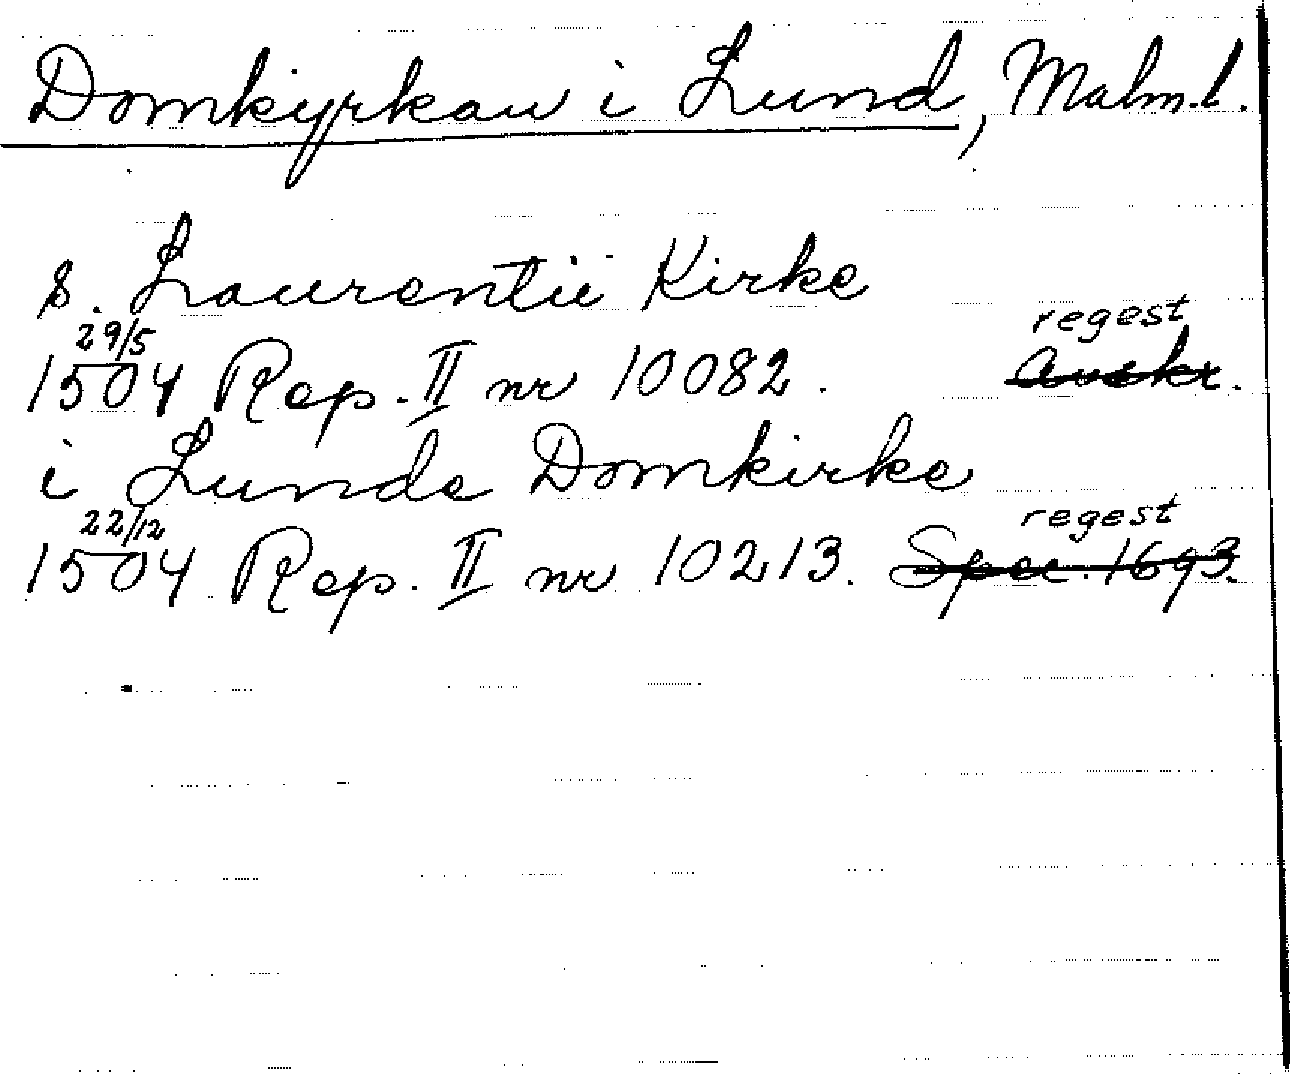 Domkyrkan i Lund, Malm.l.
S. Laurentii Kirke
29/5 regest
1504 Rep. II nr 10082. avskr.
i Lunde Domkirke
22/12 regest
1504 Rep. II nr 10213. Spec. 1693.